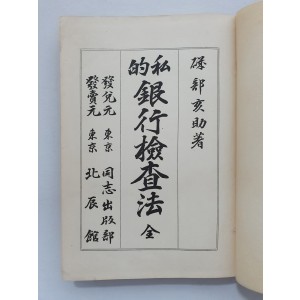 磯部亥助著
私的銀行檢査法 全
發兌元 東京 同志出版部
發賣元 東京 北辰館